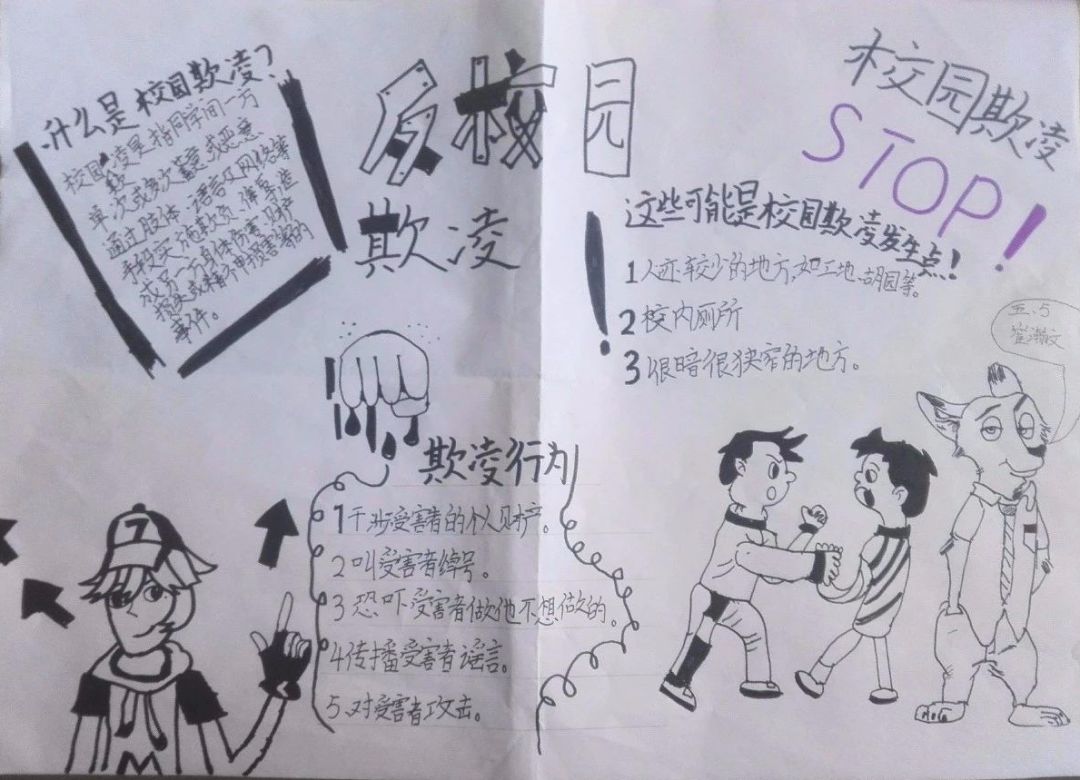 什么是校园欺凌?
校园欺凌是指同学间一方
单次或多次蓄意或恶意
通过肢体、语言及网络等
手段实施欺负、侮辱造
成另一方身体伤害、财产
损失或精神损害等的
事件。
反校园
欺凌
校园欺凌
STOP!
这些可能是校园欺凌发生点!
1人迹较少的地方,如工地、胡同等。
2校内厕所
3很暗很狭窄的地方。
五.5
欺凌行为
1干涉受害者的个人财产。
2叫受害者绰号。
3恐吓受害者做他不想做的。
4传播受害者谣言。
5.对受害者攻击。
7